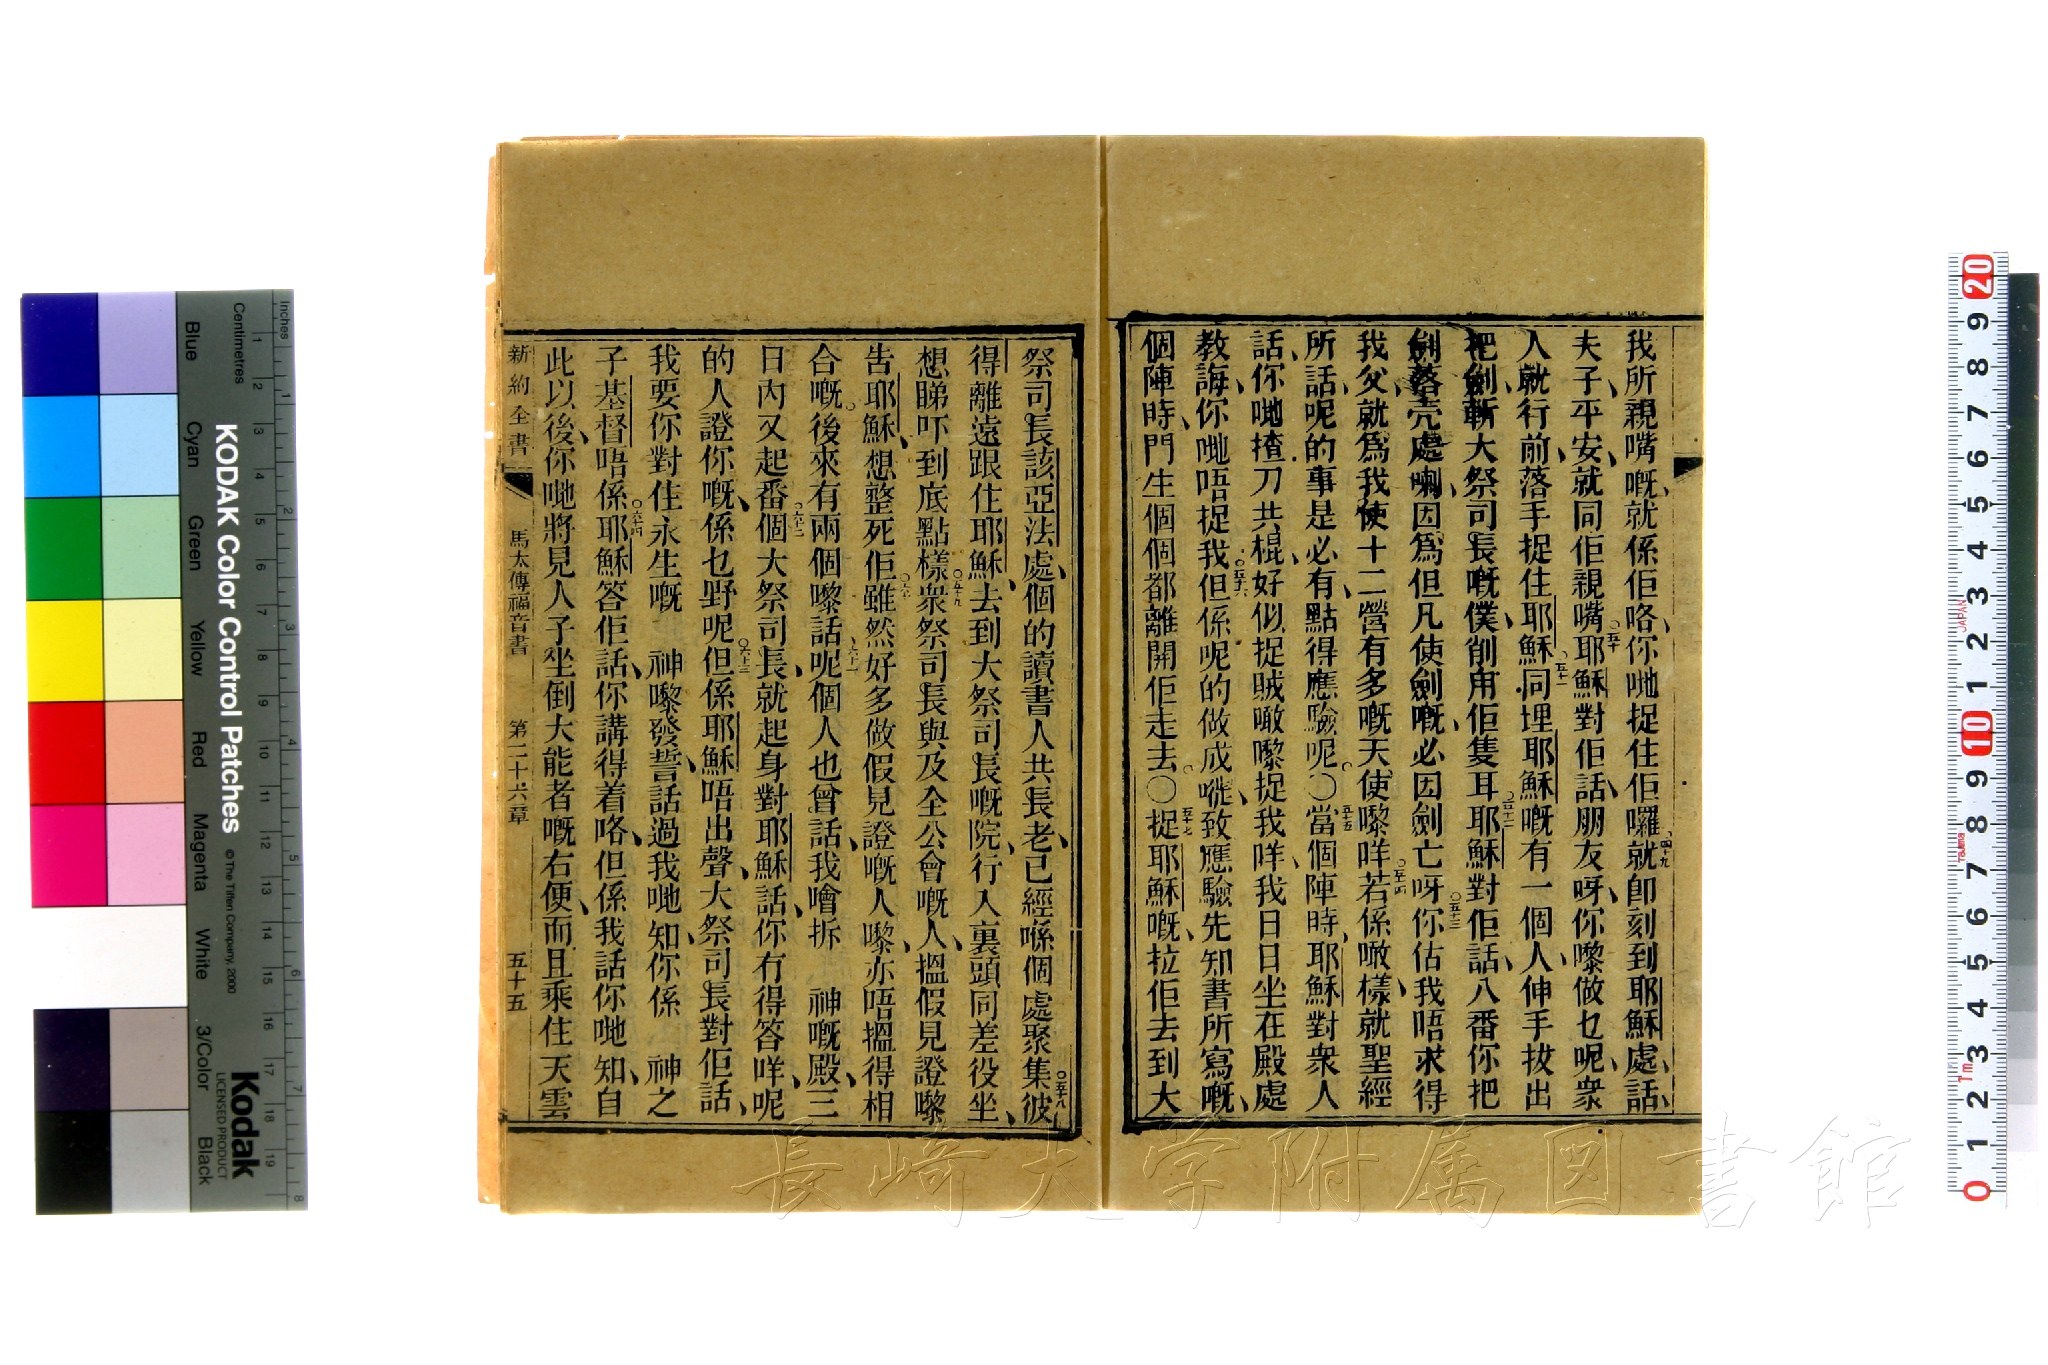 我所親嘴嘅、就係佢咯、你哋捉住佢囉、四十九就卽刻到耶穌處、話、
夫子平安、就同佢親嘴、五十耶穌對佢話、朋友呀、你嚟做乜呢、衆
人就行前、落手捉住耶穌、五十一同埋耶穌嘅有一個人、伸手拔出
把劍、斬大祭司長嘅僕、削甪佢隻耳、五十二耶穌對佢話、入番你把
劍落壳處喇、因爲但凡使劍嘅、必因劍亡呀、五十三你估我唔求得
我父、就爲我使十二營有多嘅天使嚟咩、五十四若係噉樣、就聖經
所話呢的事是必有、點得應驗呢。〇五十五當個陣時、耶穌對衆人
話、你哋揸刀共棍、好似捉賊噉嚟捉我咩、我日日坐在殿處
教誨、你哋唔捉我、五十六但係呢的做成嘥、致應驗先知書所寫嘅、
個陣時、門生個個都離開佢走去。〇五十七捉耶穌嘅、拉佢去到大
祭司長該亞法處、個的讀書人共長老、已經喺個處聚集、五十八彼
得離遠跟住耶穌、去到大祭司長嘅院、行入裏頭同差役坐、
想睇吓到底點樣、五十九衆祭司長與及全公會嘅人、搵假見證嚟
告耶穌、想整死佢、六十雖然好多做假見證嘅人嚟、亦唔搵得相
合嘅。後來有兩個嚟話、六十一呢個人也曾話、我噲拆 神嘅殿、三
日內又起番個、六十二大祭司長就起身對耶穌話、你冇得答咩、呢
的人證你嘅、係乜野呢、六十三但係耶穌唔出聲、大祭司長對佢話、
我要你對住永生嘅 神嚟發誓、話過我哋知、你係 神之
子基督唔係、六十四耶穌答佢話、你講得着咯、但係我話你哋知、自
此以後、你哋將見人子坐倒大能者嘅右便、而且乘住天雲
新約全書 馬太傳福音書 第二十六章 五十五
長崎大学附属図書館
KODAK Color Control Patches
© The Tiffen Company, 2000
Kodak
LICENSED PRODUCT
Inches
Centimetres
Blue Cyan Green Yellow Red Magenta White 3/Color Black